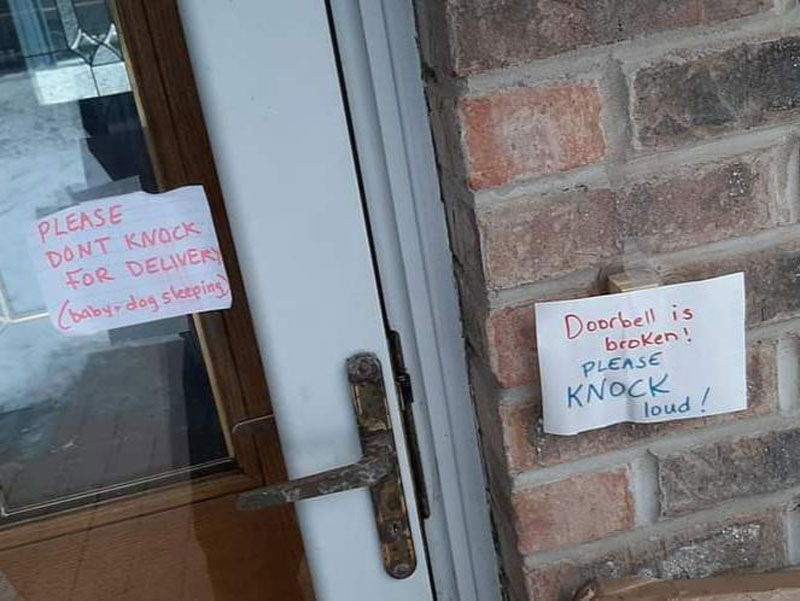 PLEASE
DONT KNOCK
FOR DELIVERY
(baby + dog sleeping)
Doorbell is
broken!
PLEASE
KNOCK
loud!